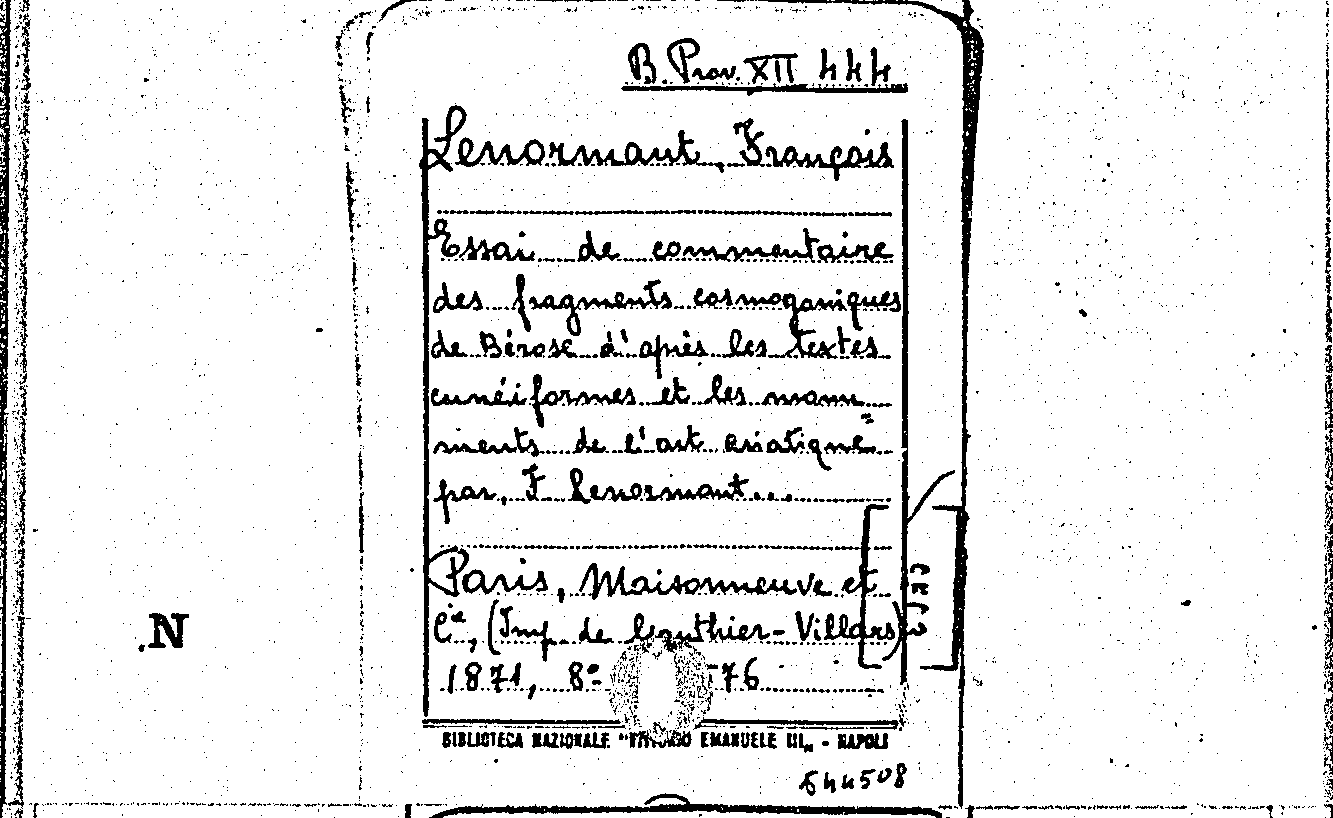 B. Prov. XII 444
Lenormant, François
Essai de commentaire
des fragments cosmogoniques
de Bérose d'après les textes
cunéiformes et les monu
ments de l'art asiatique
par F Lenormant...
Paris, Maisonneuve et
Cie, (Imp. de Gauthier-Villars)
1871, 8º 76
N
BIBLIOTECA NAZIONALE "VITTORIO EMANUELE III„ - NAPOLI
544508